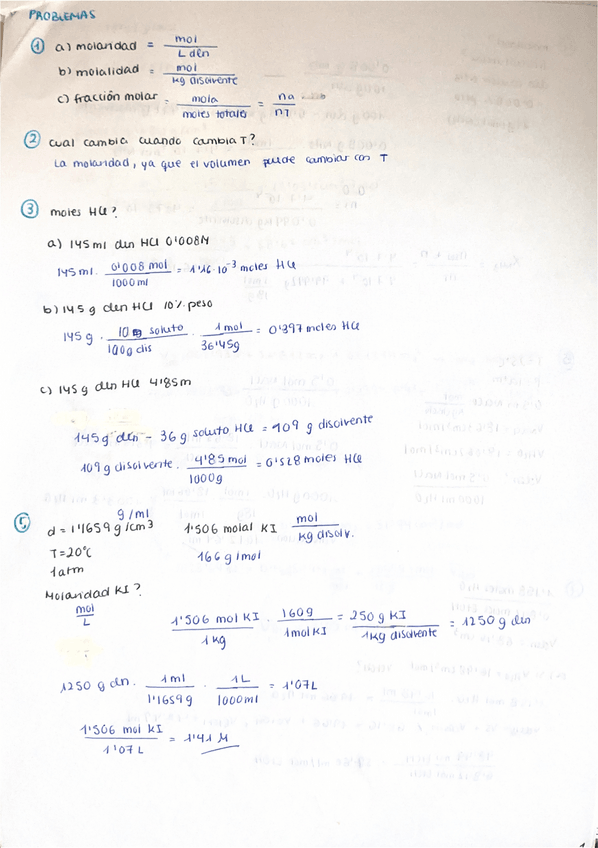 PROBLEMAS
① a) molaridad = mol / L den
b) molalidad = mol / kg disolvente
c) fracción molar = mola / moles totales = na / nT
② cual cambia cuando cambia T?
La molaridad, ya que el volumen puede cambiar con T
③ moles HCl?
a) 145 ml den HCl 0'008M
145 ml · 0'008 mol / 1000 ml = 1'16·10⁻³ moles HCl
b) 145 g den HCl 10% peso
145 g · 10 g soluto / 100g dis · 1 mol / 36'45g = 0'397 moles HCl
c) 145 g den HCl 4'85m
145g den - 36 g soluto HCl = 109 g disolvente
109 g disolvente · 4'85 mol / 1000g = 0'528 moles HCl
⑤ g/ml
d = 1'1659 g/cm³ 1'506 molal KI mol / kg disolv.
T = 20°C 166 g/mol
1 atm
Molaridad KI?
mol / L
1'506 mol KI / 1 kg · 160g / 1 mol KI = 250 g KI / 1 kg disolvente = 1250 g den
1250 g dn. · 1 ml / 1'1659 g · 1 L / 1000 ml = 1'07L
1'506 mol KI / 1'07 L = 1'41 M
1